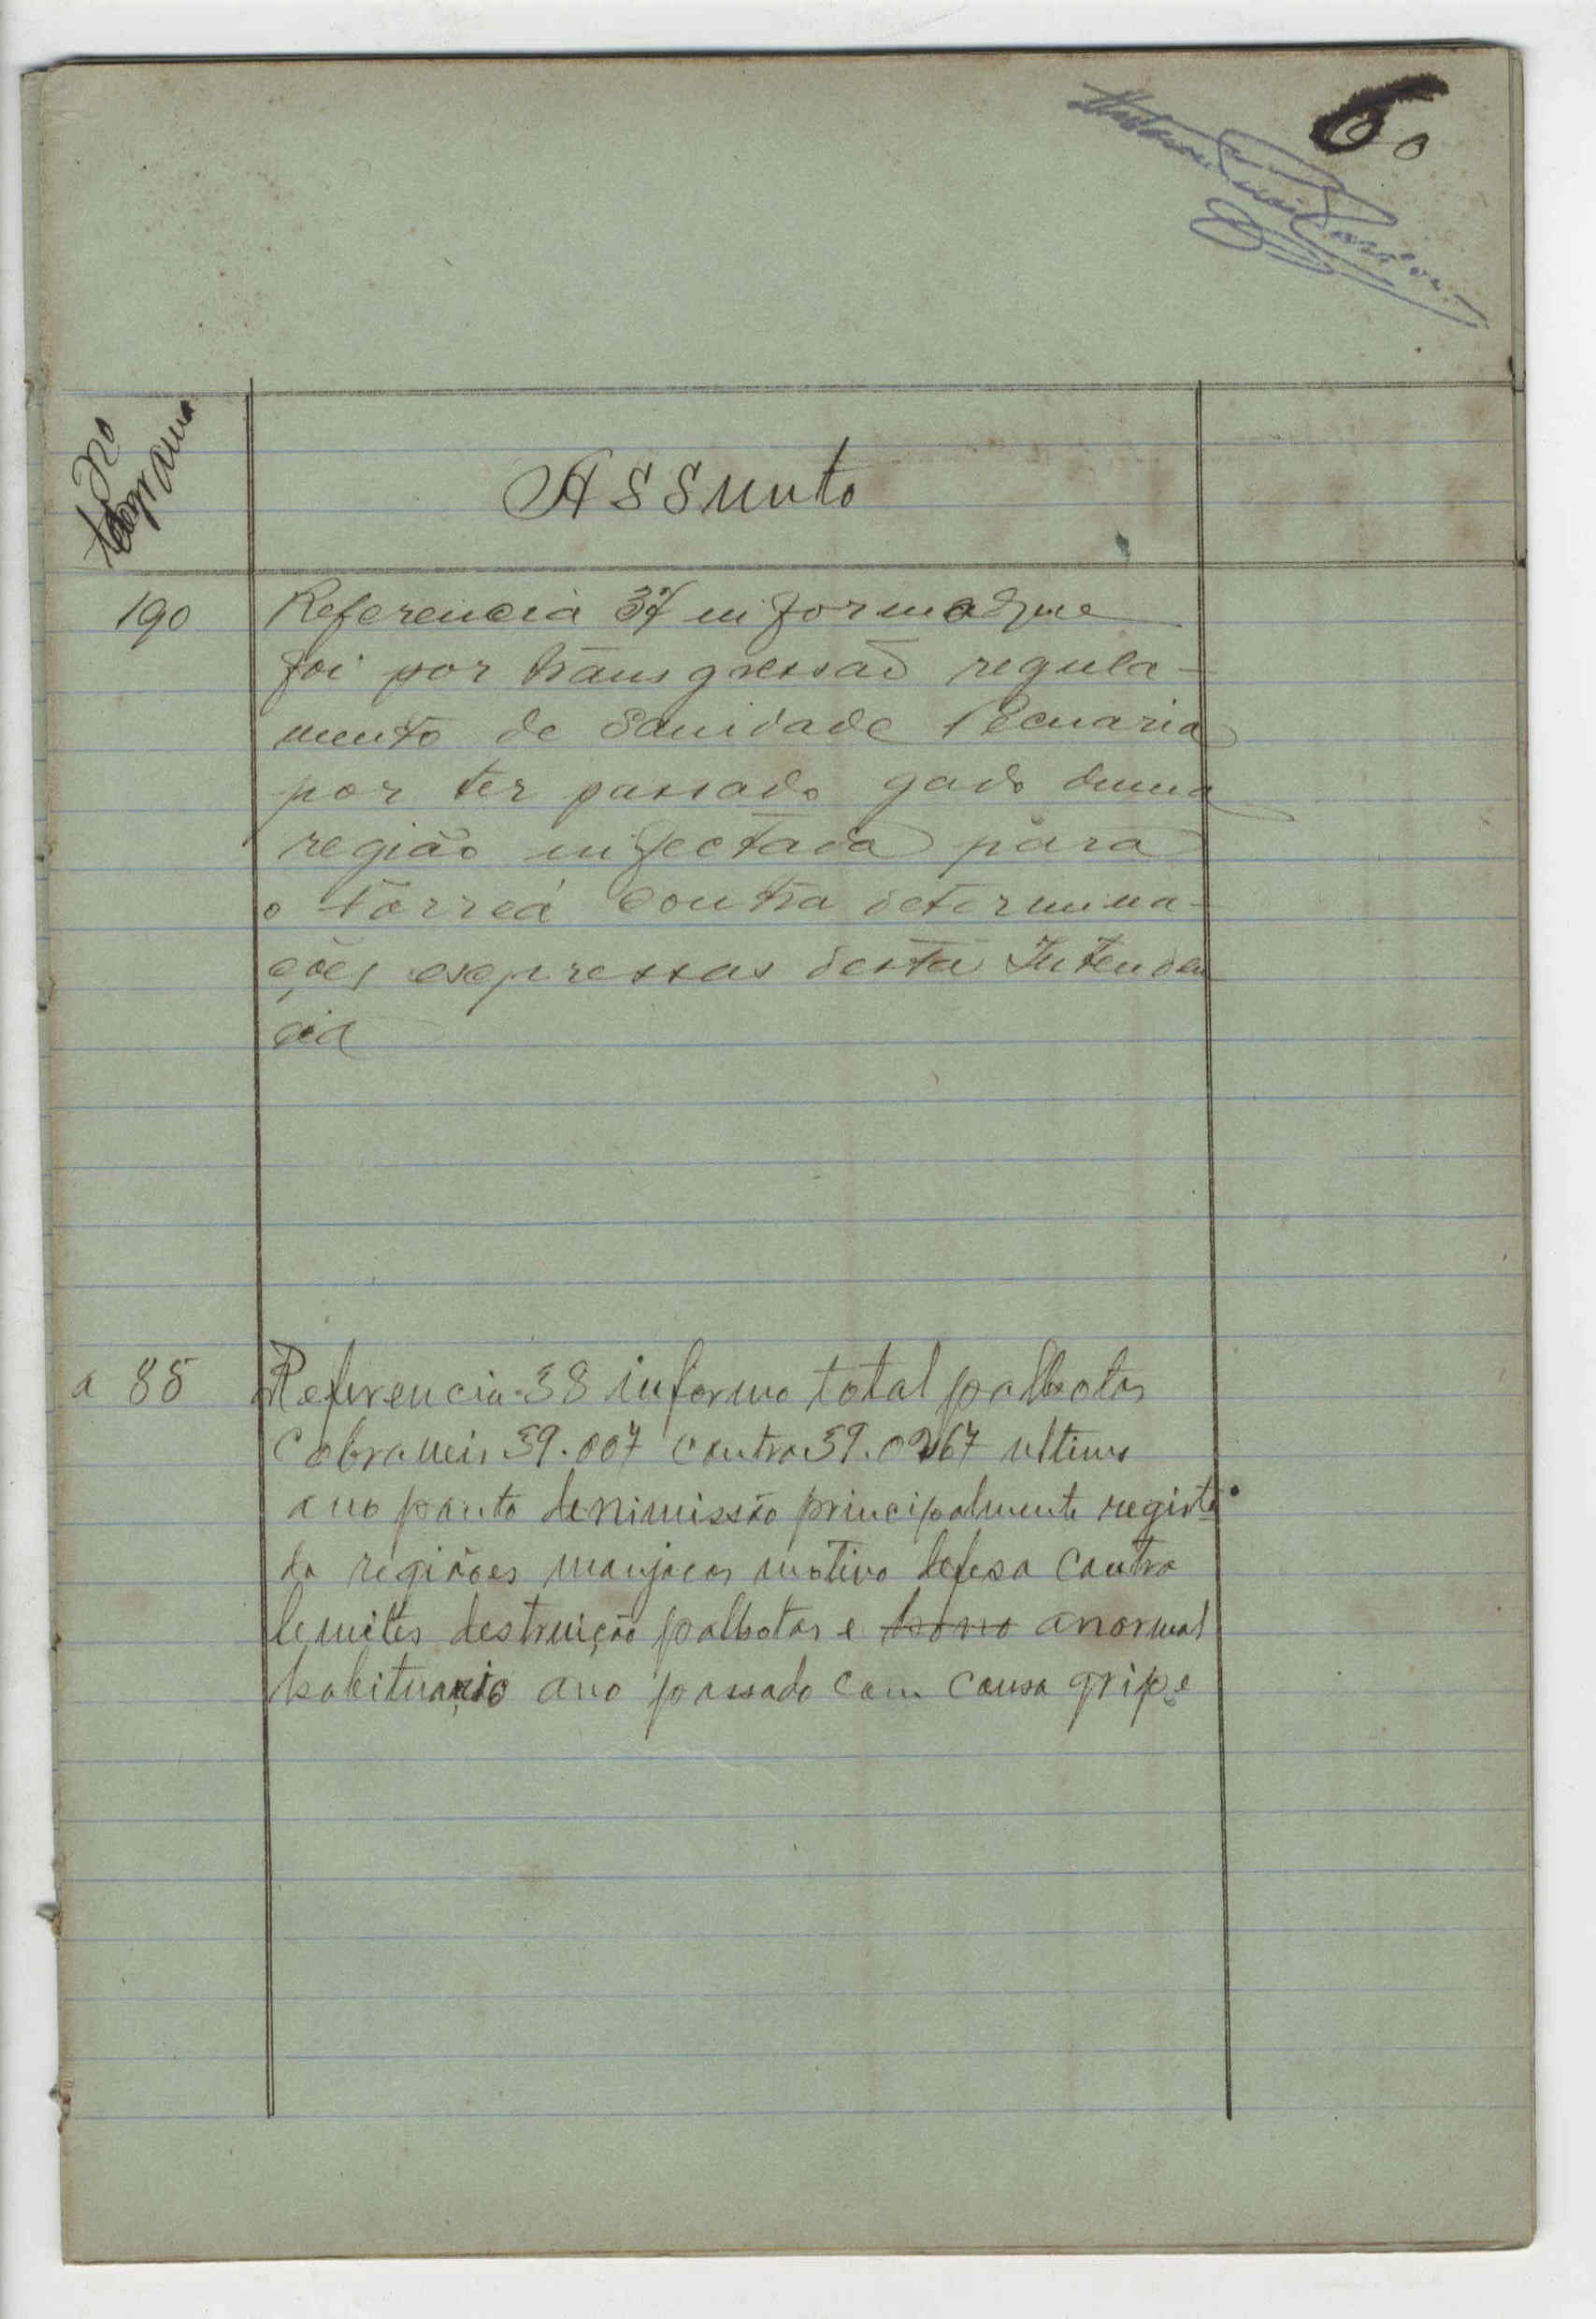 6
Nº
telegrama
Assunto
190
Referencia 37 informa que
foi por transgressão regula-
mento de Sanidade Pecuaria
por ter passado gado duma
região infectada para
o Torreá contra determina-
ções expressas desta Intenden
cia
a 85
Referencia 38 informo total palhotas
cobraveis 39.007 contra 39.0267 ultimo
ano ponto denimissão principalmente regista
da regiões manjacos motivo defesa contra
lemites destruição palhotas e anormal
habituario ano passado com causa gripe